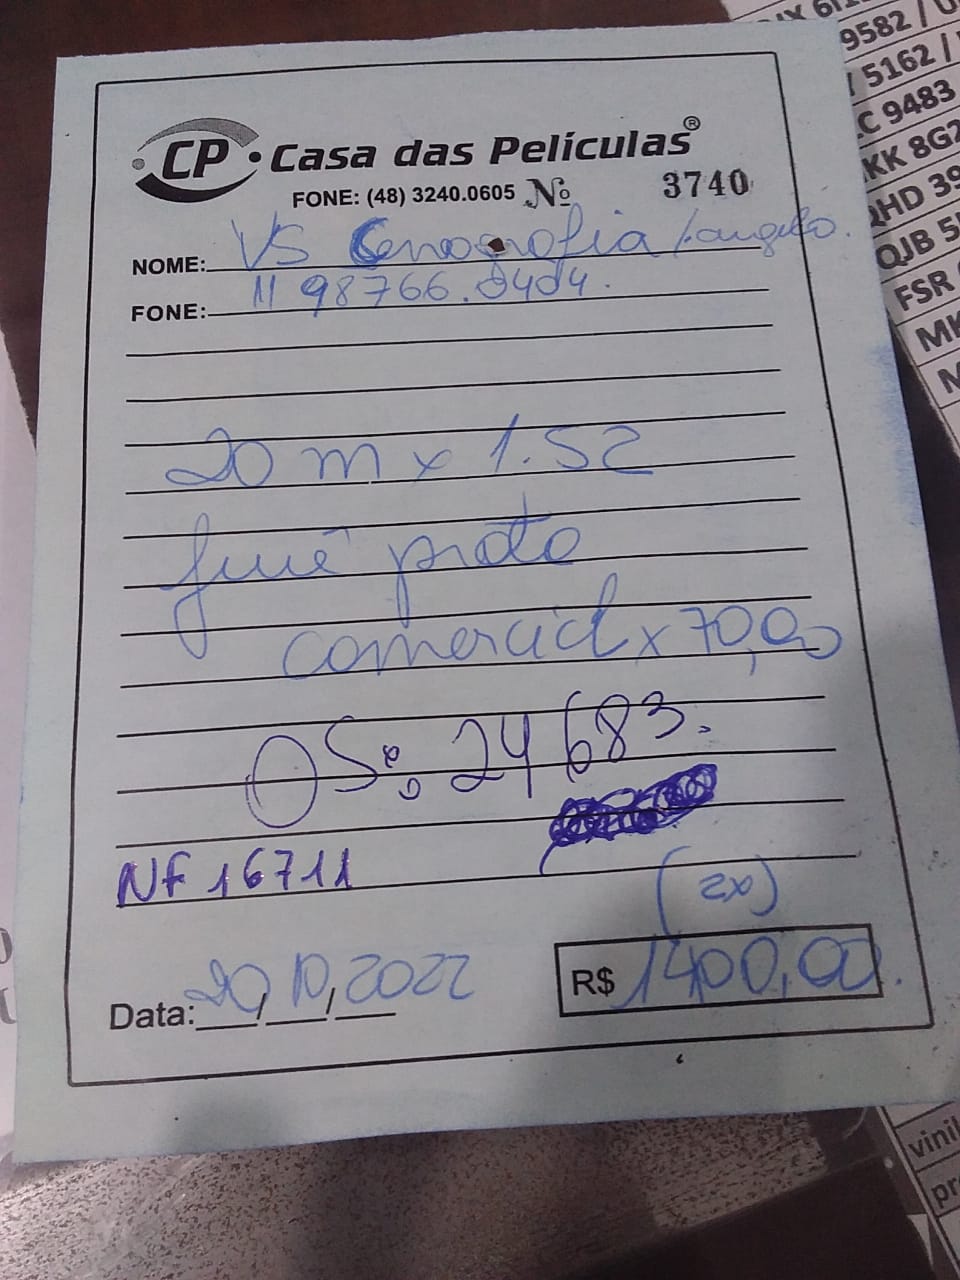 CP • Casa das Películas®
FONE: (48) 3240.0605 Nº 3740
NOME: VS Cenografia / angelo.
FONE: 11 98766.0404.
20 m x 1.52
fumê preto
comercial x 70,00
OS: 24683.
NF 16711
(2x)
Data: 20/10/2022 R$ 1400,00.
9582 /
5162 /
C 9483
KK 8G2
QHD 39
QJB 5
FSR
MK
vinil
pr